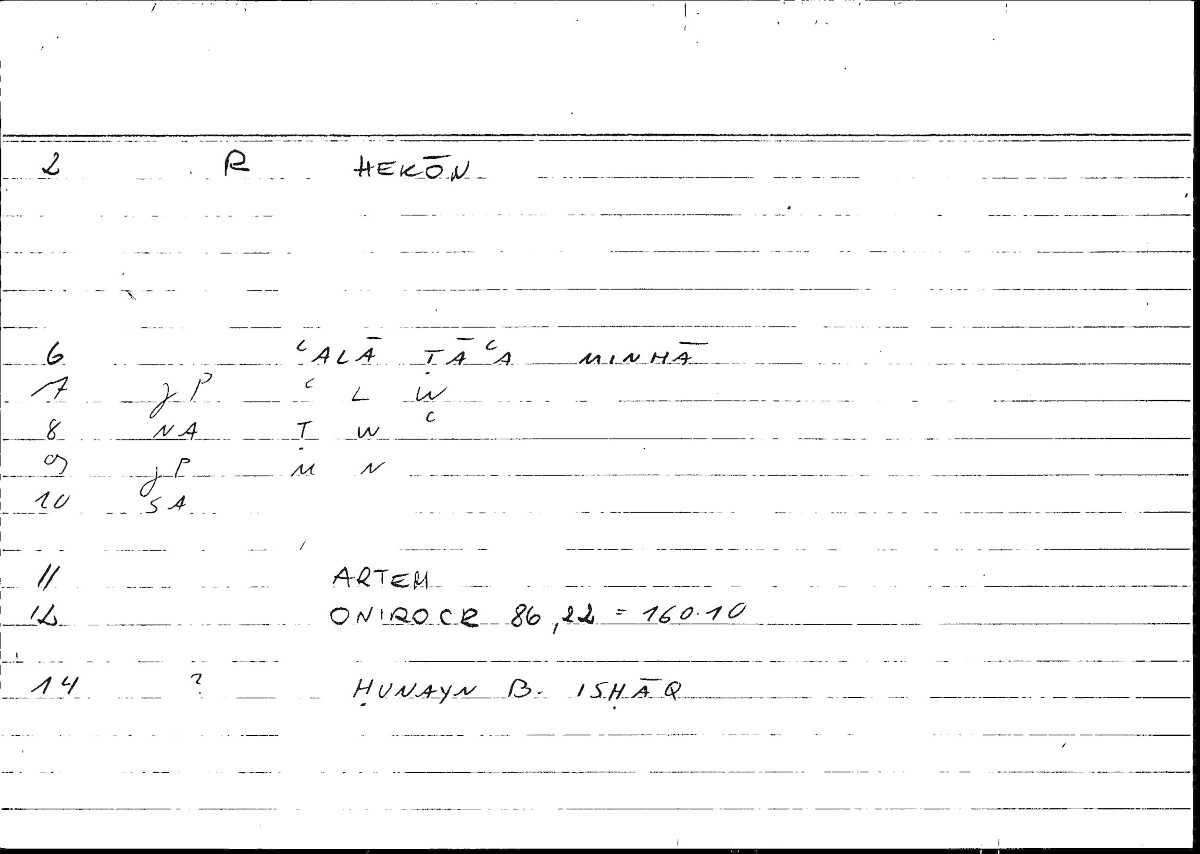 2 R HEKŌN
6 ʿALĀ ṬĀʿA MINHĀ
7 gP ʿ L W
8 NA Ṭ W ʿ
9 gP M N
10 SA
11 ARTEM
12 ONIROCR 86,22 = 160.10
14 ? ḤUNAYN B. ISḤĀQ